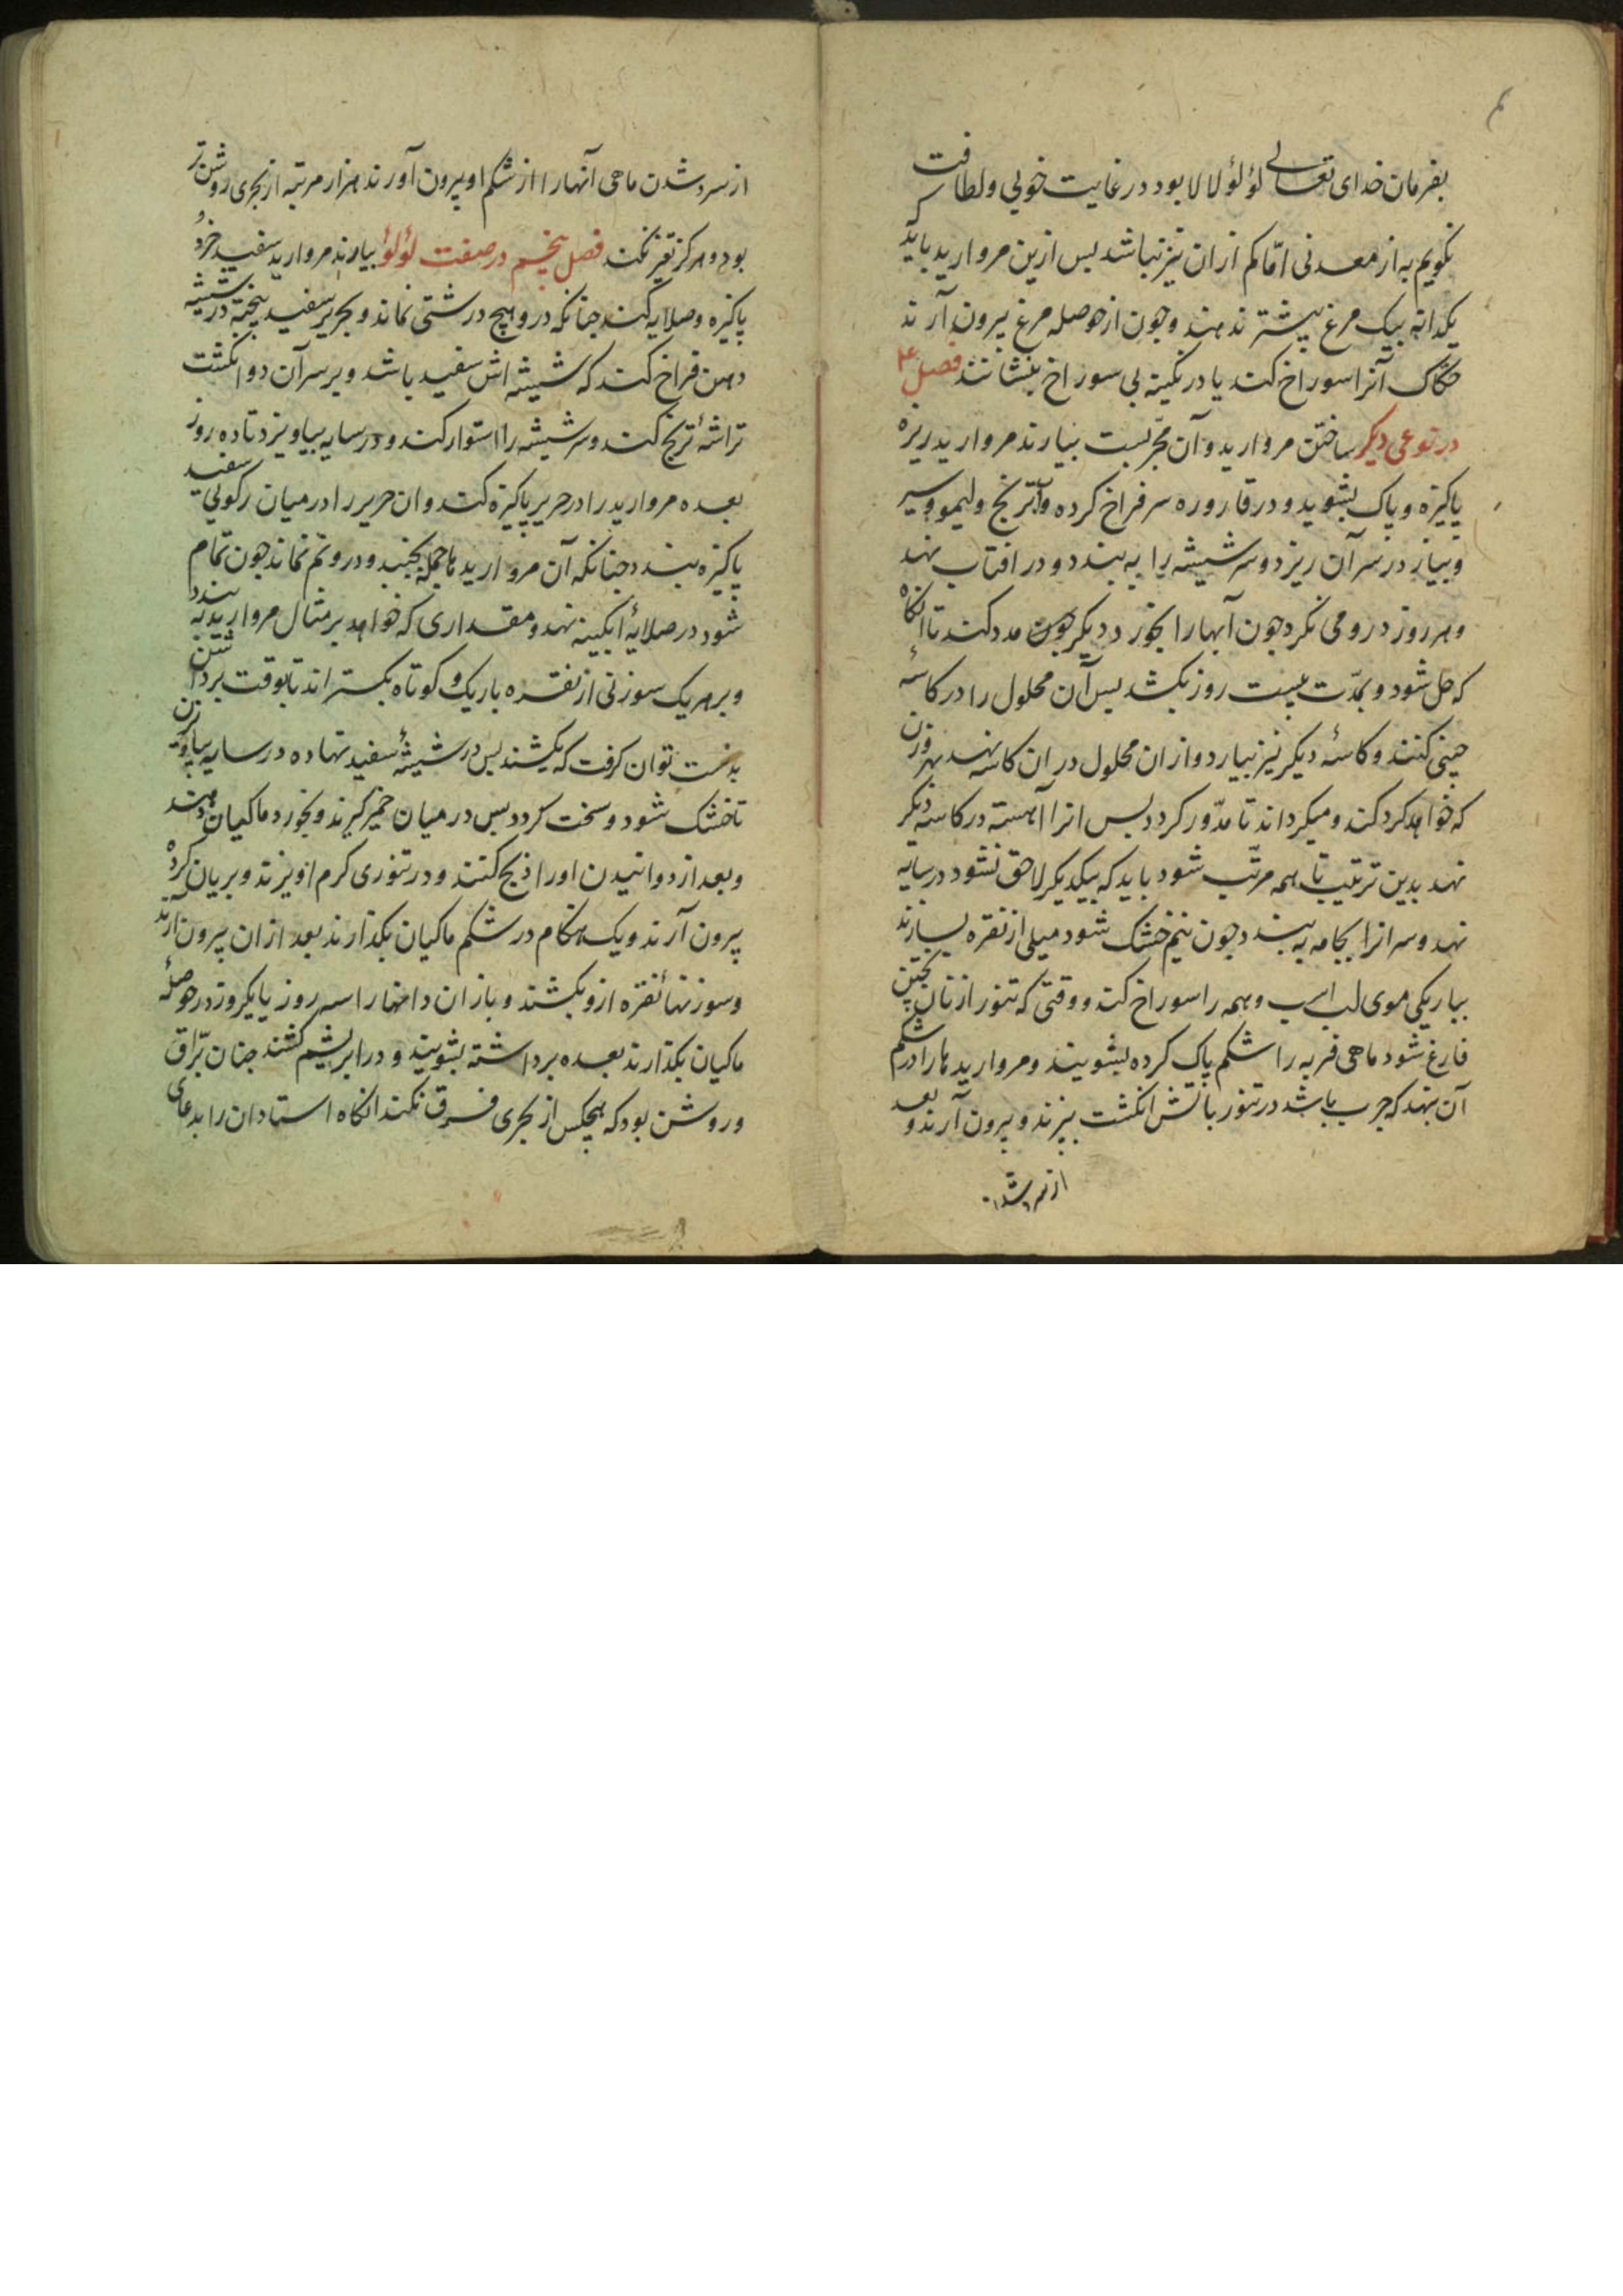 بفرمان خدای تعالی لؤلؤ لالا بود در غایت خوبی ولطافت
نکویم به از معدنی امّا کم ازان نیز نباشد پس ازین مروارید باید که
یکدانه بیک مرغ بیشتر ندهند وچون از حوصله مرغ بیرون آرند
حکاک آنرا سوراخ کند یا در نکینه بی سوراخ بنشانند فصل ۴
در نوعی دیکر ساختن مروارید وآن مجرّبست بیارند مروارید ریزه
پاکیزه وپاک بشوید ودر قاروره سر فراخ کرده وآب ترنج ولیمو وسیر
وپیاز در سر آن ریزد وسر شیشه را به بندد ودر افتاب نهد
وهر روز درو می نکرد چون آبها را بخورد دیکر مدد کند تا انکاه
که حل شود وبمدّت بیست روز بکشد پس آن محلول را در کاسهٔ
چینی کنند وکاسهٔ دیکر نیز بیارد وازان محلول دران کاسه نهد بهر وزن
که خواهد کرد کند ومیکرداند تا مدّور کردد پس انرا آهسته در کاسه دیکر
نهد بدین ترتیب تا همه مرتّب شود باید که بیکدیکر لاحق نشود در سایه
نهد وسر انرا بجامه به بندد چون نیم خشک شود میلی از نقره بسازند
بباریکی موی لب اسب وهمه را سوراخ کند ووقتی که تنور از نان پختن
فارغ شود ماهی فربه را شکم پاک کرده بشویند ومروارید هارا در شکم
آن نهد که چرب باشد در تنور باتش انکشت بپزند وبیرون آرند وبعد
از سرد شدن
از سرد شدن ماهی آنها را از شکم او بیرون آورند هزار مرتبه از بحری روشن تر
بود وهرکز تغیر نکند فصل پنجم در صفت لؤلؤ بیارند مروارید سفید خرد و
پاکیزه وصلایه کند چنانکه درو هیچ درشتی نماند وبحریر سفید بیخته در شیشه
دهن فراخ کند که شیشه اش سفید باشد وبر سر آن دو انکشت
تراشهٔ ترنج کند وسر شیشه را استوار کند ودر سایه بیاویزد تا ده روز
بعده مروارید را در حریر پاکیزه کند وان حریر را در میان رکوئی سفید
پاکیزه ببندد چنانکه آن مروارید ها جمله بجنبد ودرو نم نماند چون تمام
شود در صلایهٔ آبکینه نهد ومقداری که خواهد بر مثال مروارید به بندد
وبر هر یک سوزنی از نقره باریک وکوتاه بکستراند تا بوقت برداشتن
بدست توان کرفت که بکشند پس در شیشهٔ سفید نهاده در سایه بیاویزند
تا خشک شود وسخت کردد پس در میان خمیر کیرند وبخورد ماکیان دهند
وبعد از دوانیدن او را ذبح کنند ودر تنوری کرم اویزند وبریان کرده
بیرون آرند ویک هنکام در شکم ماکیان بکذارند بعد ازان بیرون آرند
وسوزنهاء نقره ازو بکشند وباز ان دانها را سه روز یا یکروز در حوصلهٔ
ماکیان بکذارند بعده برداشته بشویند ودر ابریشم کشند چنان برّاق
وروشن بود که هیچکس از بحری فرق نکند انکاه استادان را بدعای